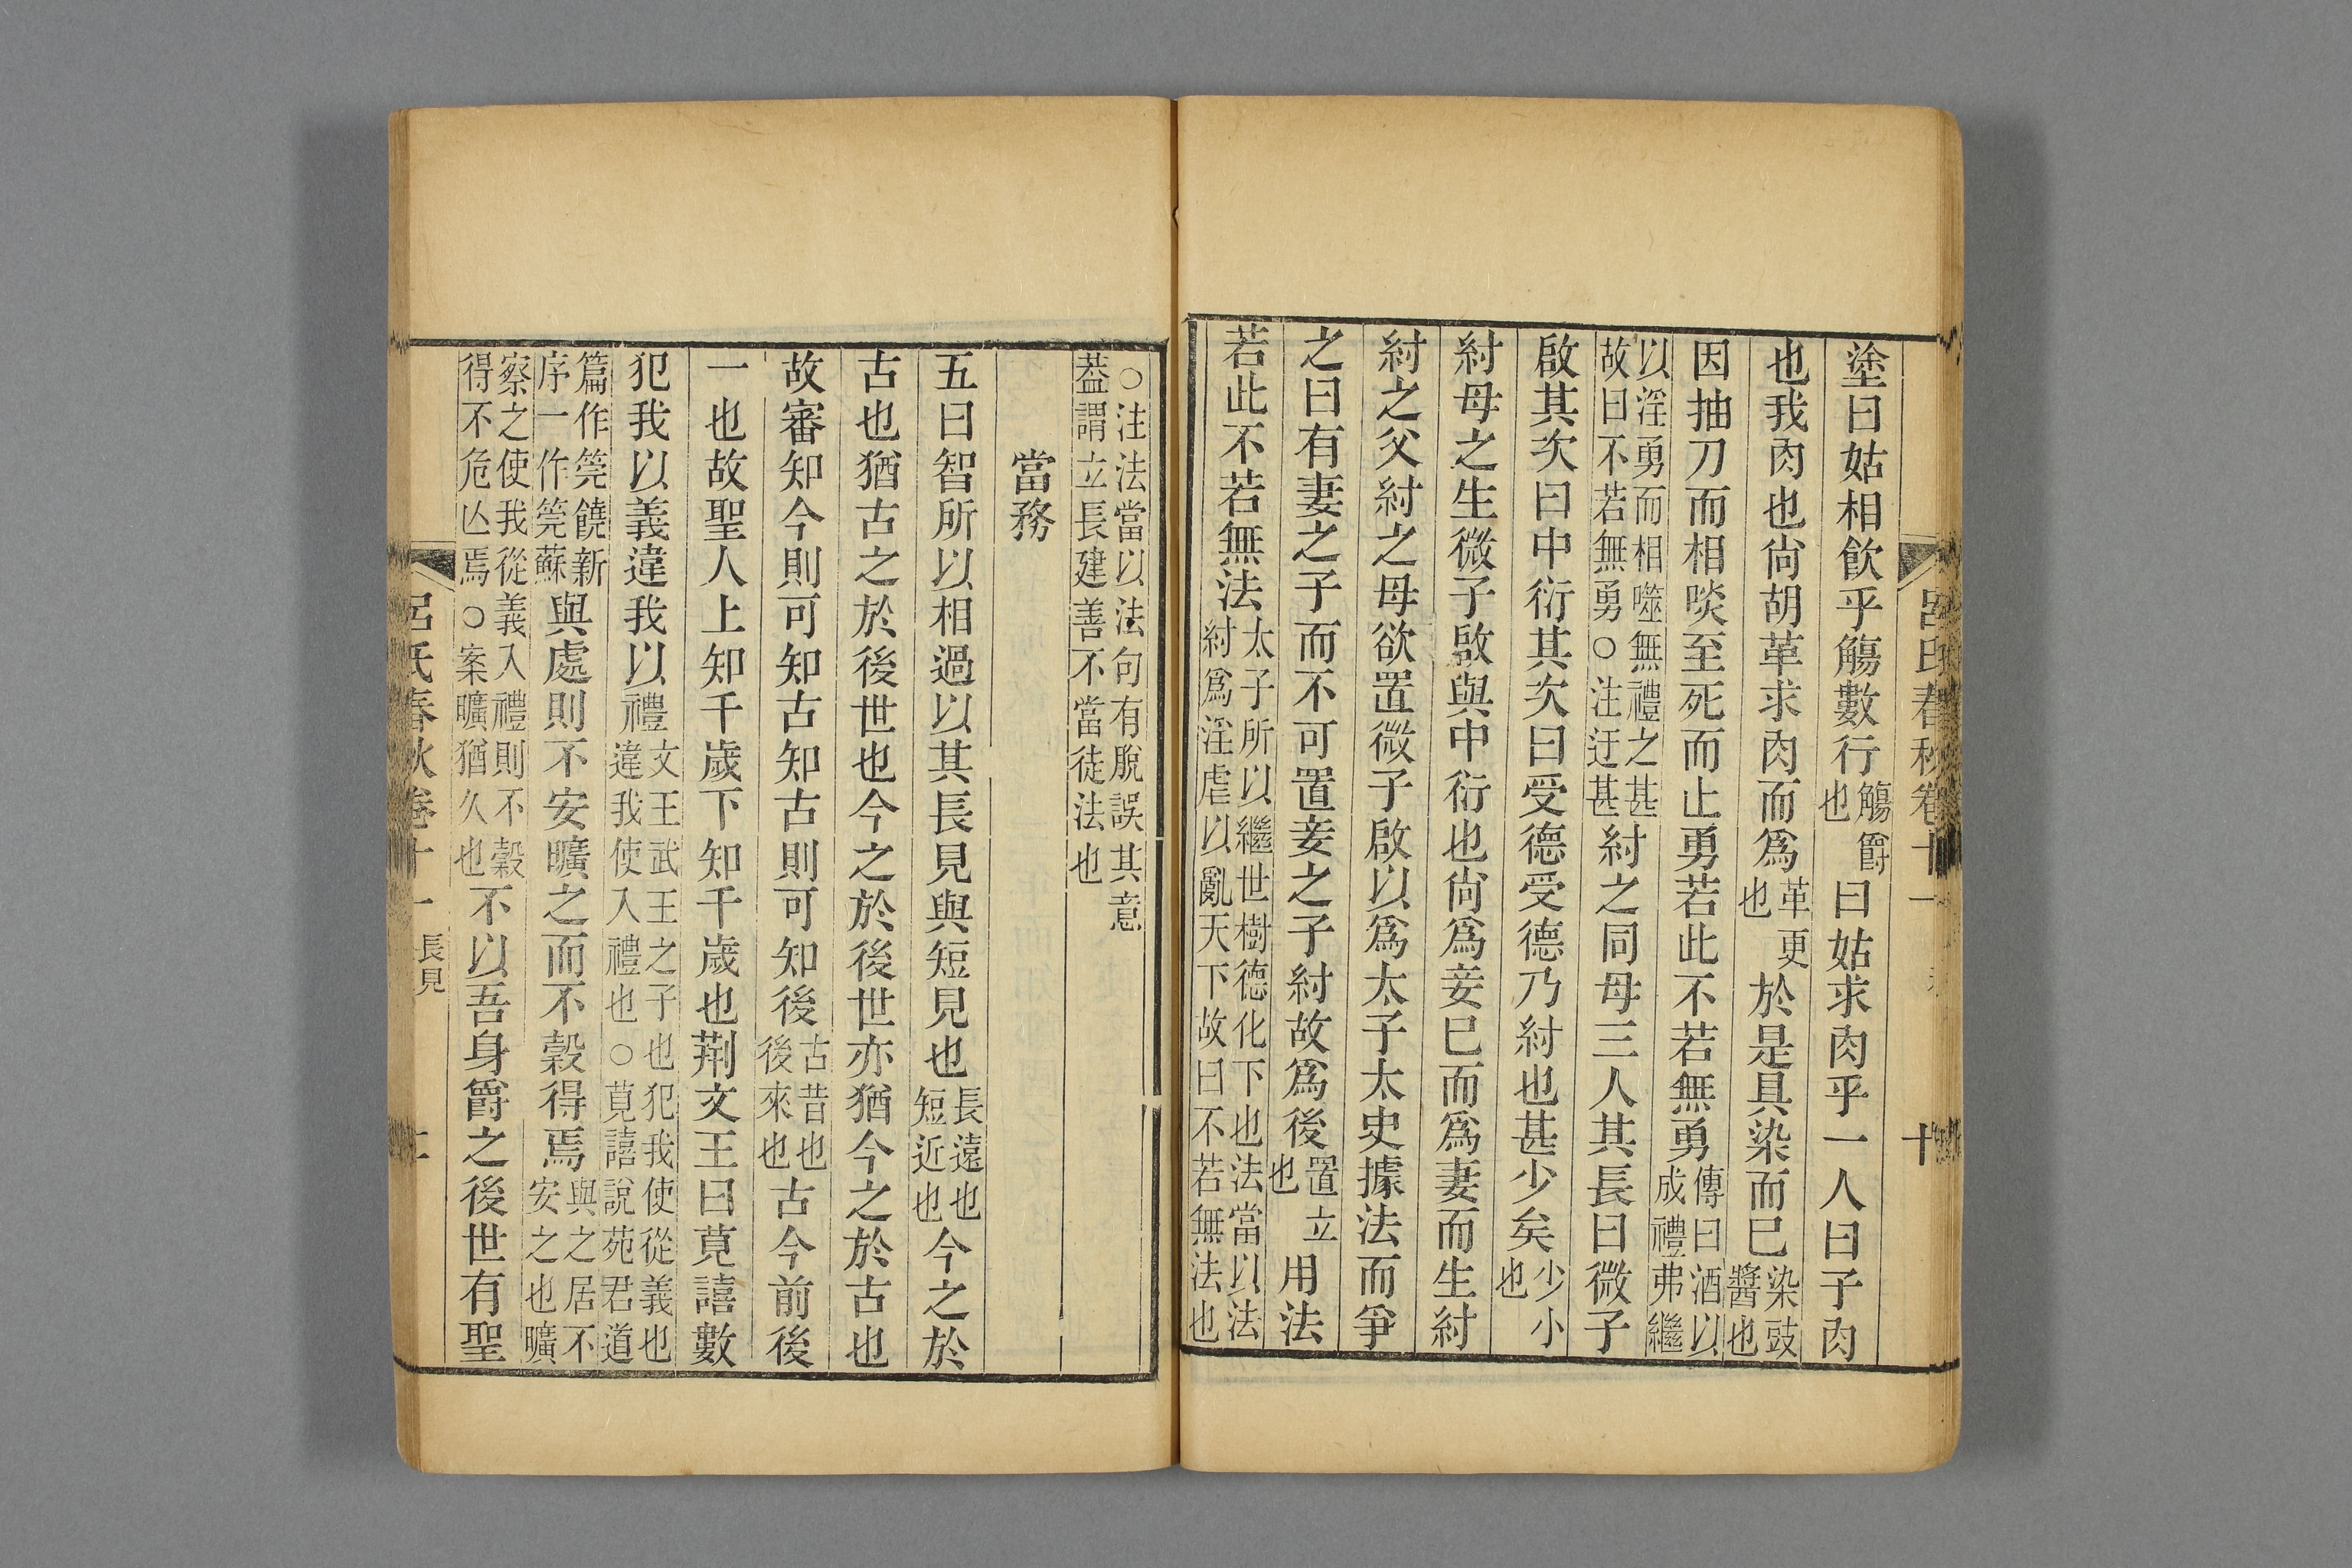 呂氏春秋卷十一
十
塗曰姑相飲乎觴數行觴爵也曰姑求肉乎一人曰子肉
也我肉也尙胡革求肉而爲革更也於是具染而巳染豉醬也
因抽刀而相啖至死而止勇若此不若無勇傳曰酒以成禮弗繼
以淫勇而相噬無禮之甚故曰不若無勇○注迂甚紂之同母三人其長曰微子
啟其次曰中衍其次曰受德受德乃紂也甚少矣少小也
紂母之生微子啟與中衍也尙爲妾巳而爲妻而生紂
紂之父紂之母欲置微子啟以爲太子太史據法而爭
之曰有妻之子而不可置妾之子紂故爲後置立也用法
若此不若無法太子所以繼世樹德化下也法當以法紂爲淫虐以亂天下故曰不若無法也
○注法當以法句有脫誤其意葢謂立長建善不當徒法也
當務
五曰智所以相過以其長見與短見也長遠也短近也今之於
古也猶古之於後世也今之於後世亦猶今之於古也
故審知今則可知古知古則可知後古昔也後來也古今前後
一也故聖人上知千歲下知千歲也荆文王曰莧譆數
犯我以義違我以禮文王武王之子也犯我使從義也違我使入禮也○莧譆說苑君道
篇作筦饒新序一作筦蘇與處則不安曠之而不穀得焉與之居不安之也曠
察之使我從義入禮則不穀得不危亾焉○案曠猶久也不以吾身爵之後世有聖
呂氏春秋卷十一
長見